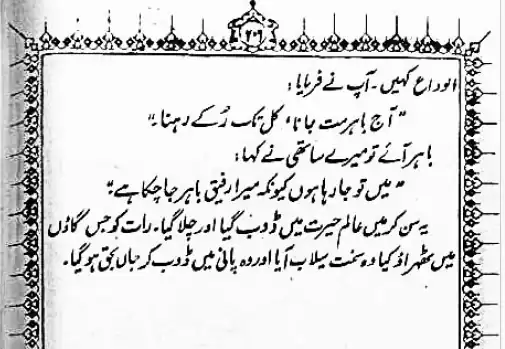 ۲۰۶
الوداع کہیں۔ آپ نے فرمایا:
"آج باہر مت جانا، کل تک رُکے رہنا۔"
باہر آئے تو میرے ساتھی نے کہا:
"میں تو جا رہا ہوں کیونکہ میرا رفیق باہر جا چکا ہے"
یہ سن کر میں عالم حیرت میں ڈوب گیا اور چلا گیا۔ رات کو جس گاؤں
میں ٹھہراؤ کیا وہ سخت سیلاب آیا اور وہ پانی میں ڈوب کر جاں بحق ہو گیا۔